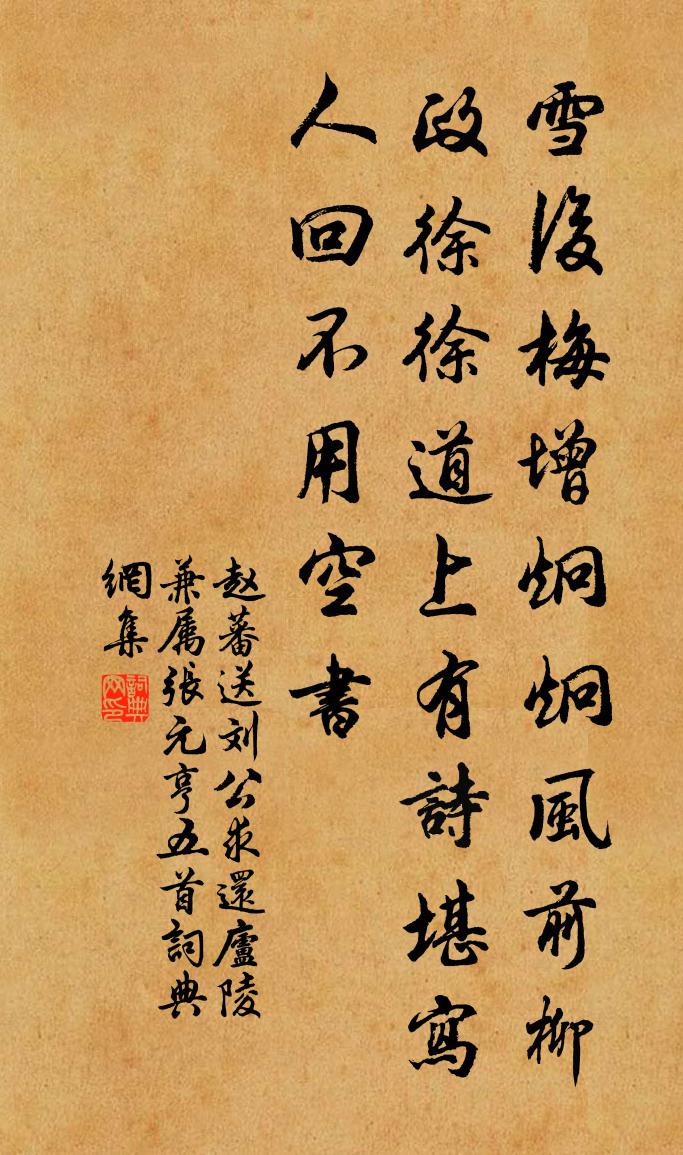 雪後梅增炯炯風前柳
政徐徐道上有詩堪寫
人回不用空書
赵蕃送刘公求還廬陵
兼属張元亨五首詞典
網集
詞典網印